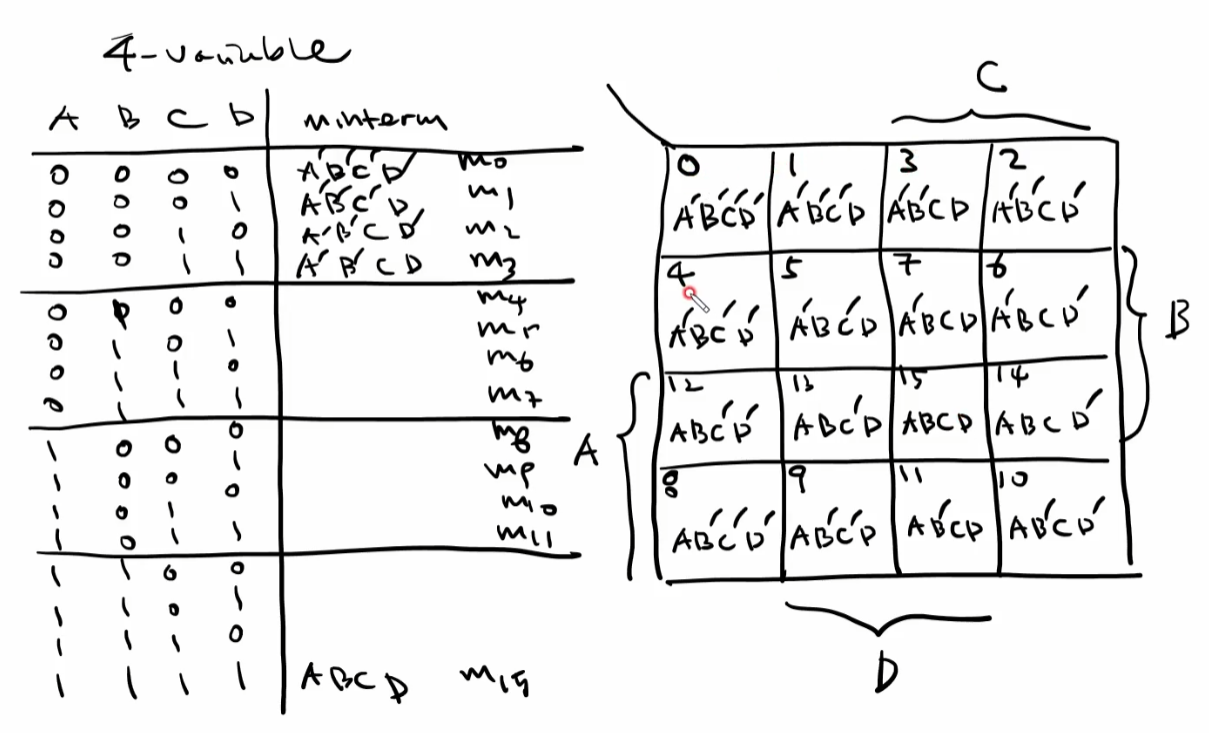 4-variable
A B C D minterm
0 0 0 0 A'B'C'D' m0
0 0 0 1 A'B'C'D m1
0 0 1 0 A'B'CD' m2
0 0 1 1 A'B'CD m3
0 1 0 0 m4
0 1 0 1 m5
0 1 1 0 m6
0 1 1 1 m7
1 0 0 0 m8
1 0 0 1 m9
1 0 1 0 m10
1 0 1 1 m11
1 1 0 0
1 1 0 1
1 1 1 0
1 1 1 1 ABCD m15
C
0 1 3 2
A'B'C'D' A'B'C'D A'B'CD A'B'CD'
4 5 7 6
A'BC'D' A'BC'D A'BCD A'BCD'
B
12 13 15 14
ABC'D' ABC'D ABCD ABCD'
A
8 9 11 10
AB'C'D' AB'C'D AB'CD AB'CD'
D